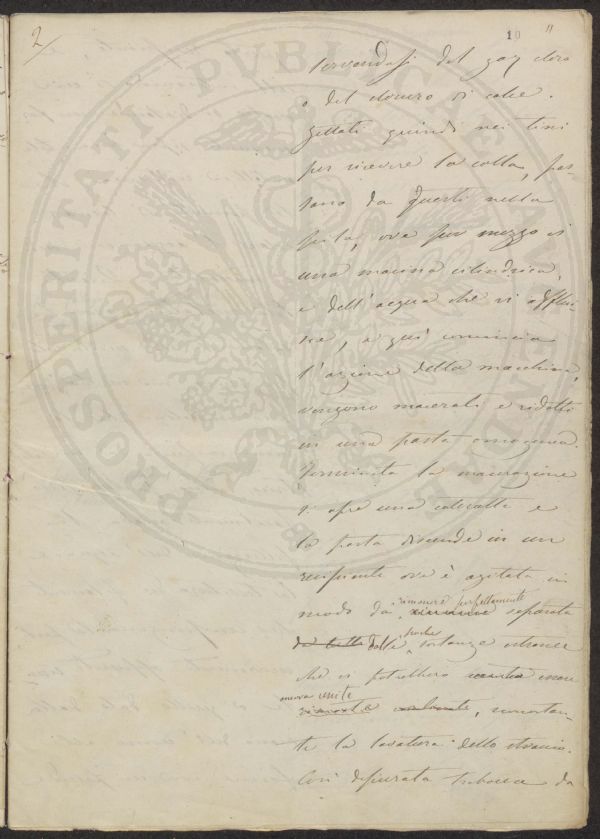 2
10 11
servendosi del gaz cloro
o del cloruro di calce.
Gettati quindi nei tini
per ricevere la colla, pas-
sano da questi nella
pila, ove per mezzo di
una macina cilindrica,
e dell'acqua che vi afflui-
sce, a qui comincia
l'azione della macchina,
vengono macerati e ridotti
in una pasta omogenea.
Terminata la macerazione
s'apre una cateratta e
la pasta discende in un
recipiente ove è agitata in
rimanere perfettamente
modo da separata
poche
dalle sostanze estranee
che vi potrebbero essere
ancora unite
, nonostan-
te la lavatura dello straccio.
Così depurata trabocca da
PROSPERITATI PUBLICAE AUGENDAE